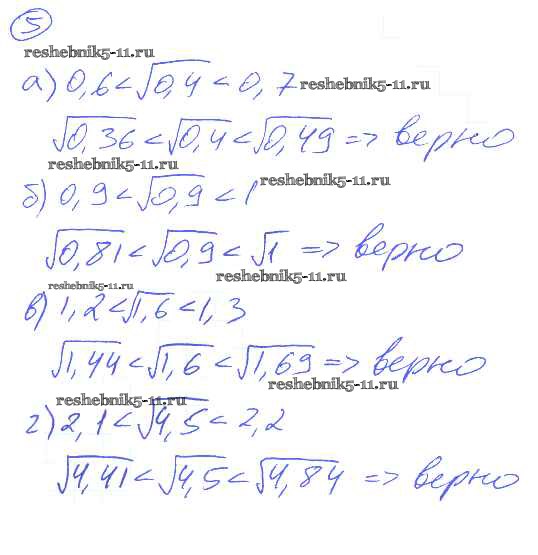 5
reshebnik5-11.ru
а) 0,6 < √0,4 < 0,7 reshebnik5-11.ru
√0,36 < √0,4 < √0,49 => верно
reshebnik5-11.ru
б) 0,9 < √0,9 < 1 reshebnik5-11.ru
√0,81 < √0,9 < √1 => верно
reshebnik5-11.ru
reshebnik5-11.ru
в) 1,2 < √1,6 < 1,3
√1,44 < √1,6 < √1,69 => верно
reshebnik5-11.ru
reshebnik5-11.ru
г) 2,1 < √4,5 < 2,2
√4,41 < √4,5 < √4,84 => верно